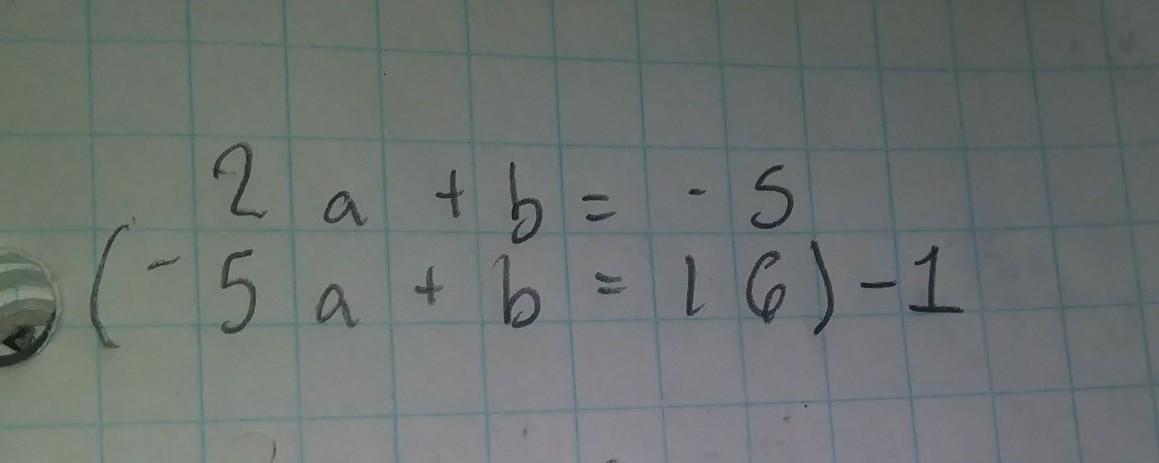 2a + b = -5
(-5a + b = 16) -1